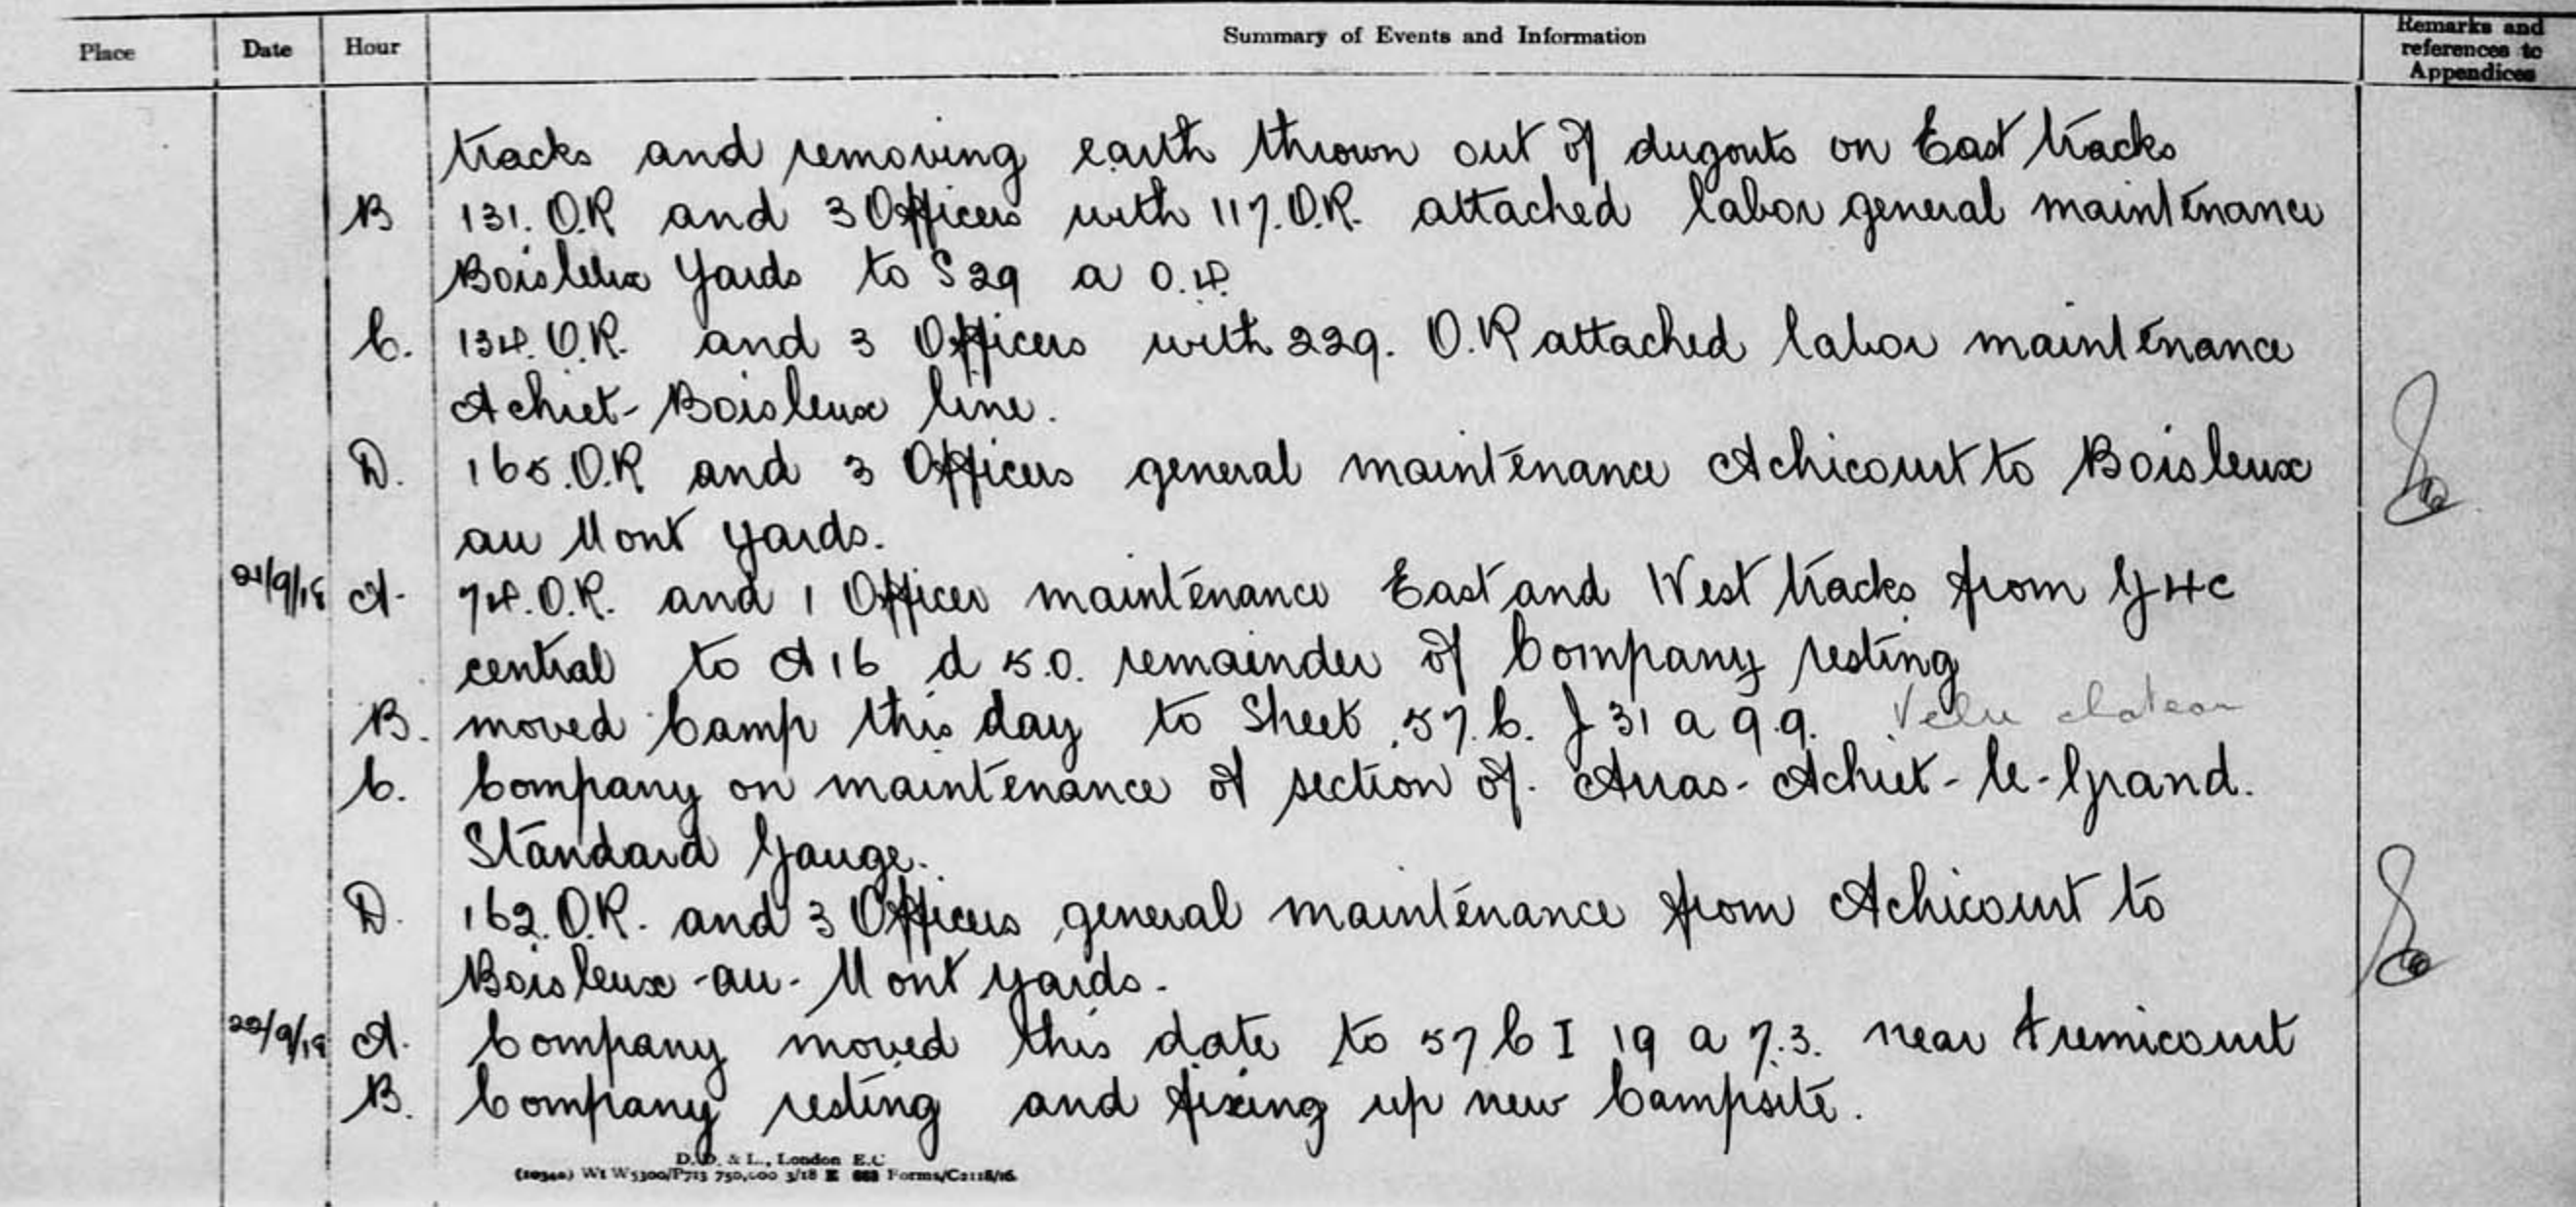 Place Date Hour Summary of Events and Information Remarks and references to Appendices
tracks and removing earth thrown out of dugouts on East tracks
B 131. O.R and 3 Officers with 117. O.R. attached labor general maintenance
Boisleux Yards to S29 a 0.4.
C. 134. O.R. and 3 Officers with 229. O.R attached labor maintenance
Achiet-Boisleux line.
D. 165. O.R and 3 Officers general maintenance Achicourt to Boisleux
au Mont yards.
21/9/18 A. 74. O.R. and 1 Officer maintenance East and West tracks from G4c
central to A16 d 5.0. remainder of Company resting
B. moved Camp this day to Sheet 57.C. J 31 a 9.9. Velu chateau
C. Company on maintenance of section of. Arras-Achiet-le-Grand.
Standard Gauge.
D. 162. O.R. and 3 Officers general maintenance from Achicourt to
Boisleux-au-Mont yards.
22/9/18 A. Company moved this date to 57 C I 19 a 7.3. near Fremicourt
B. Company resting and fixing up new Campsite.
D. D. & L., London E.C
Wt W5300/P713 750,000 3/18 E Forms/C2118/16.